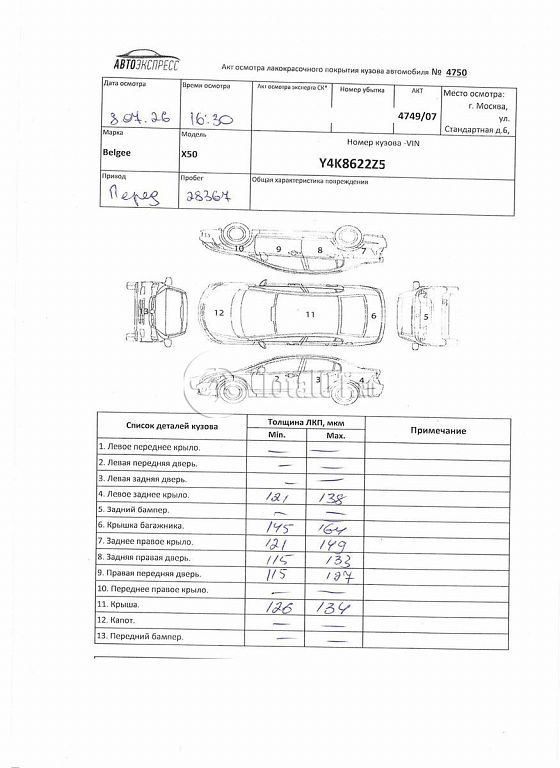 АВТОЭКСПРЕСС
Акт осмотра лакокрасочного покрытия кузова автомобиля № 4750
Дата осмотра
Время осмотра
Акт осмотра эксперта СК*
Номер убытка
АКТ
Место осмотра:
3.07.26
16:30
4749/07
г. Москва,
ул.
Стандартная д.6,
Марка
Модель
Номер кузова -VIN
Belgee
X50
Y4K8622Z5
Привод
Пробег
Общая характеристика повреждений
Перед
28367
10 9 8 7
13 12 11 6 5
1 2 3 4
Список деталей кузова
Толщина ЛКП, мкм
Примечание
Min.
Max.
1. Левое переднее крыло. — —
2. Левая передняя дверь. — —
3. Левая задняя дверь. — —
4. Левое заднее крыло. 121 138
5. Задний бампер. — —
6. Крышка багажника. 145 164
7. Заднее правое крыло. 121 149
8. Задняя правая дверь. 115 133
9. Правая передняя дверь. 115 127
10. Переднее правое крыло. — —
11. Крыша. 126 134
12. Капот. — —
13. Передний бампер. — —